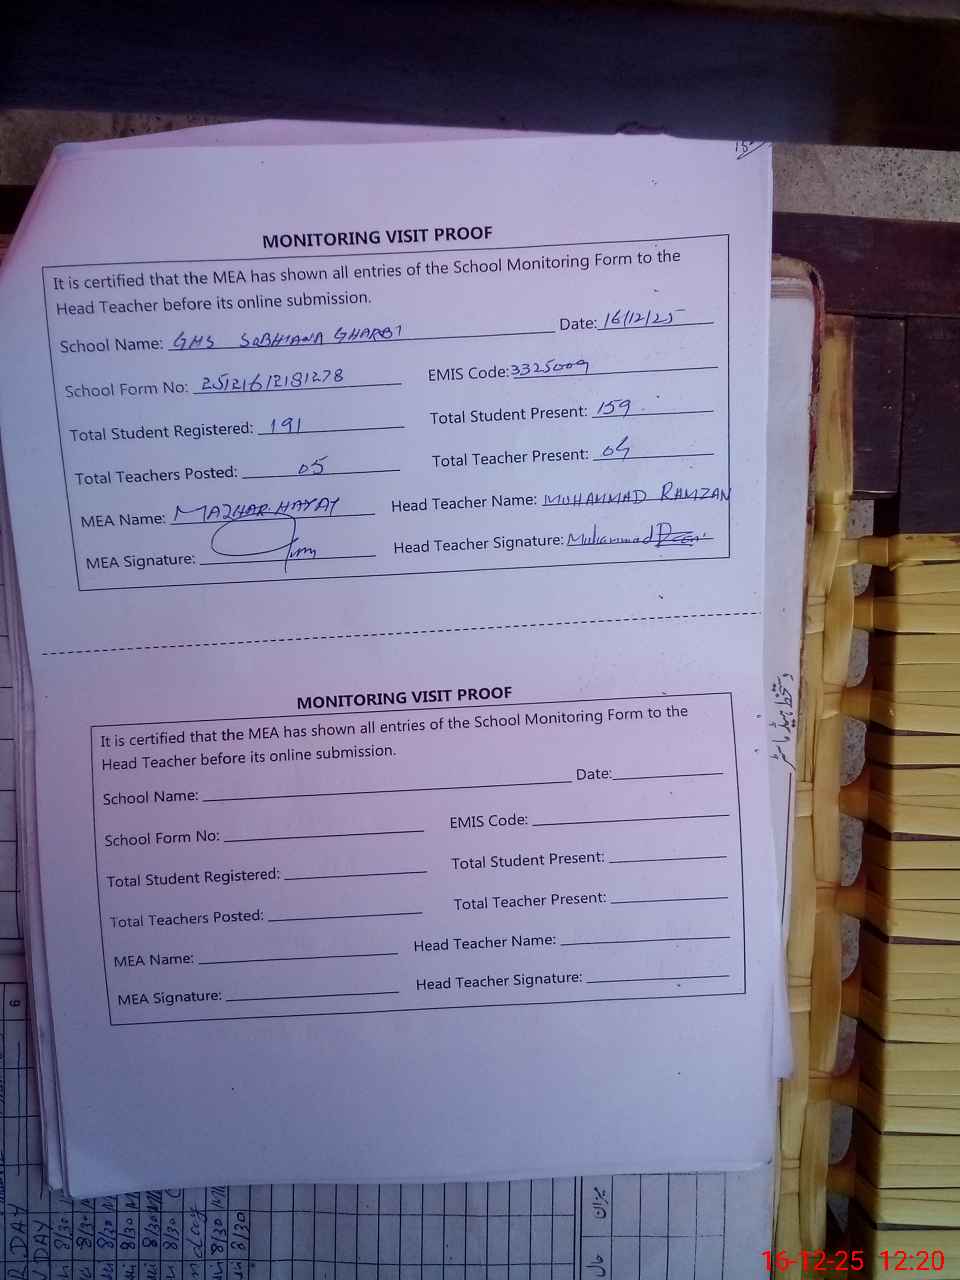 MONITORING VISIT PROOF
It is certified that the MEA has shown all entries of the School Monitoring Form to the
Head Teacher before its online submission.
School Name: GMS SOBHIANA GHARBI Date: 16/12/25
School Form No: 25121612181278 EMIS Code: 33250009
Total Student Registered: 191 Total Student Present: 159
Total Teachers Posted: 05 Total Teacher Present: 04
MEA Name: MAZHAR HAYAT Head Teacher Name: MUHAMMAD RAMZAN
MEA Signature: Head Teacher Signature: Muhammad
MONITORING VISIT PROOF
It is certified that the MEA has shown all entries of the School Monitoring Form to the
Head Teacher before its online submission.
School Name: Date:
School Form No: EMIS Code:
Total Student Registered: Total Student Present:
Total Teachers Posted: Total Teacher Present:
MEA Name: Head Teacher Name:
MEA Signature: Head Teacher Signature:
دستخط ہیڈ ماسٹر
میزان
حال
6
DAY
DAY
8/30
8/30
8/30
8/30
8/30
8/30
8/30
8/30
16-12-25 12:20